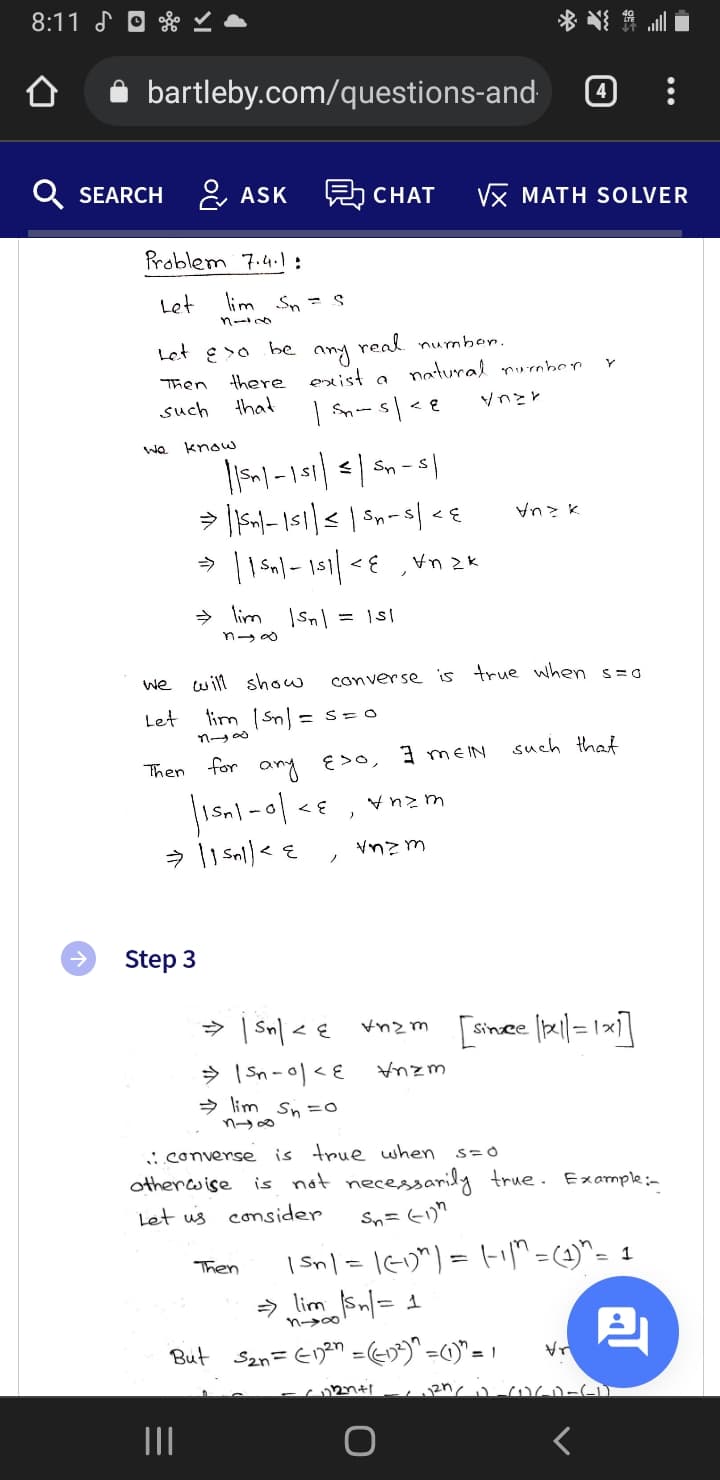 8:11
4G
LTE
bartleby.com/questions-and
4
SEARCH ASK CHAT √x MATH SOLVER
Problem 7.4.1 :
Let lim Sn = s
n→∞
Let ε>0 be any real number.
Then there exist a natural number r
such that |Sn-s|<ε ∀n≥r
We know
||Sn|-|s|| ≤ |Sn-s|
⇒ ||Sn|-|s|| ≤ |Sn-s| <ε ∀n≥k
⇒ ||Sn|-|s|| <ε , ∀n≥k
⇒ lim |Sn| = |s|
n→∞
we will show converse is true when s=0
Let lim |Sn| = s=0
n→∞
Then for any ε>0, ∃ m∈ℕ such that
||Sn|-0| <ε , ∀n≥m
⇒ ||Sn||<ε , ∀n≥m
Step 3
⇒ |Sn|<ε ∀n≥m [since ||x||=|x|]
⇒ |Sn-0|<ε ∀n≥m
⇒ lim Sn=0
n→∞
∴ converse is true when s=0
otherwise is not necessarily true. Example:-
Let us consider Sn=(-1)ⁿ
Then |Sn|=|(-1)ⁿ|=|-1|ⁿ=(1)ⁿ=1
⇒ lim |Sn|=1
n→∞
But S2n=(-1)²ⁿ=((-1)²)ⁿ=(1)ⁿ=1